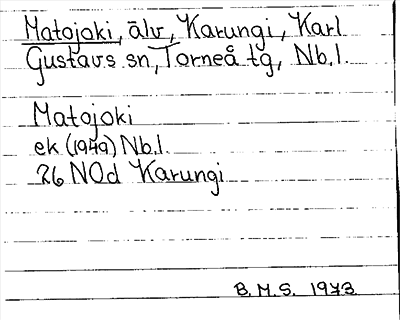 Matojoki, älv, Karungi, Karl
Gustavs sn, Torneå tg, Nb.l.
Matojoki
ek (1949) Nb.l.
26 NOd Karungi
B.M.S. 1973